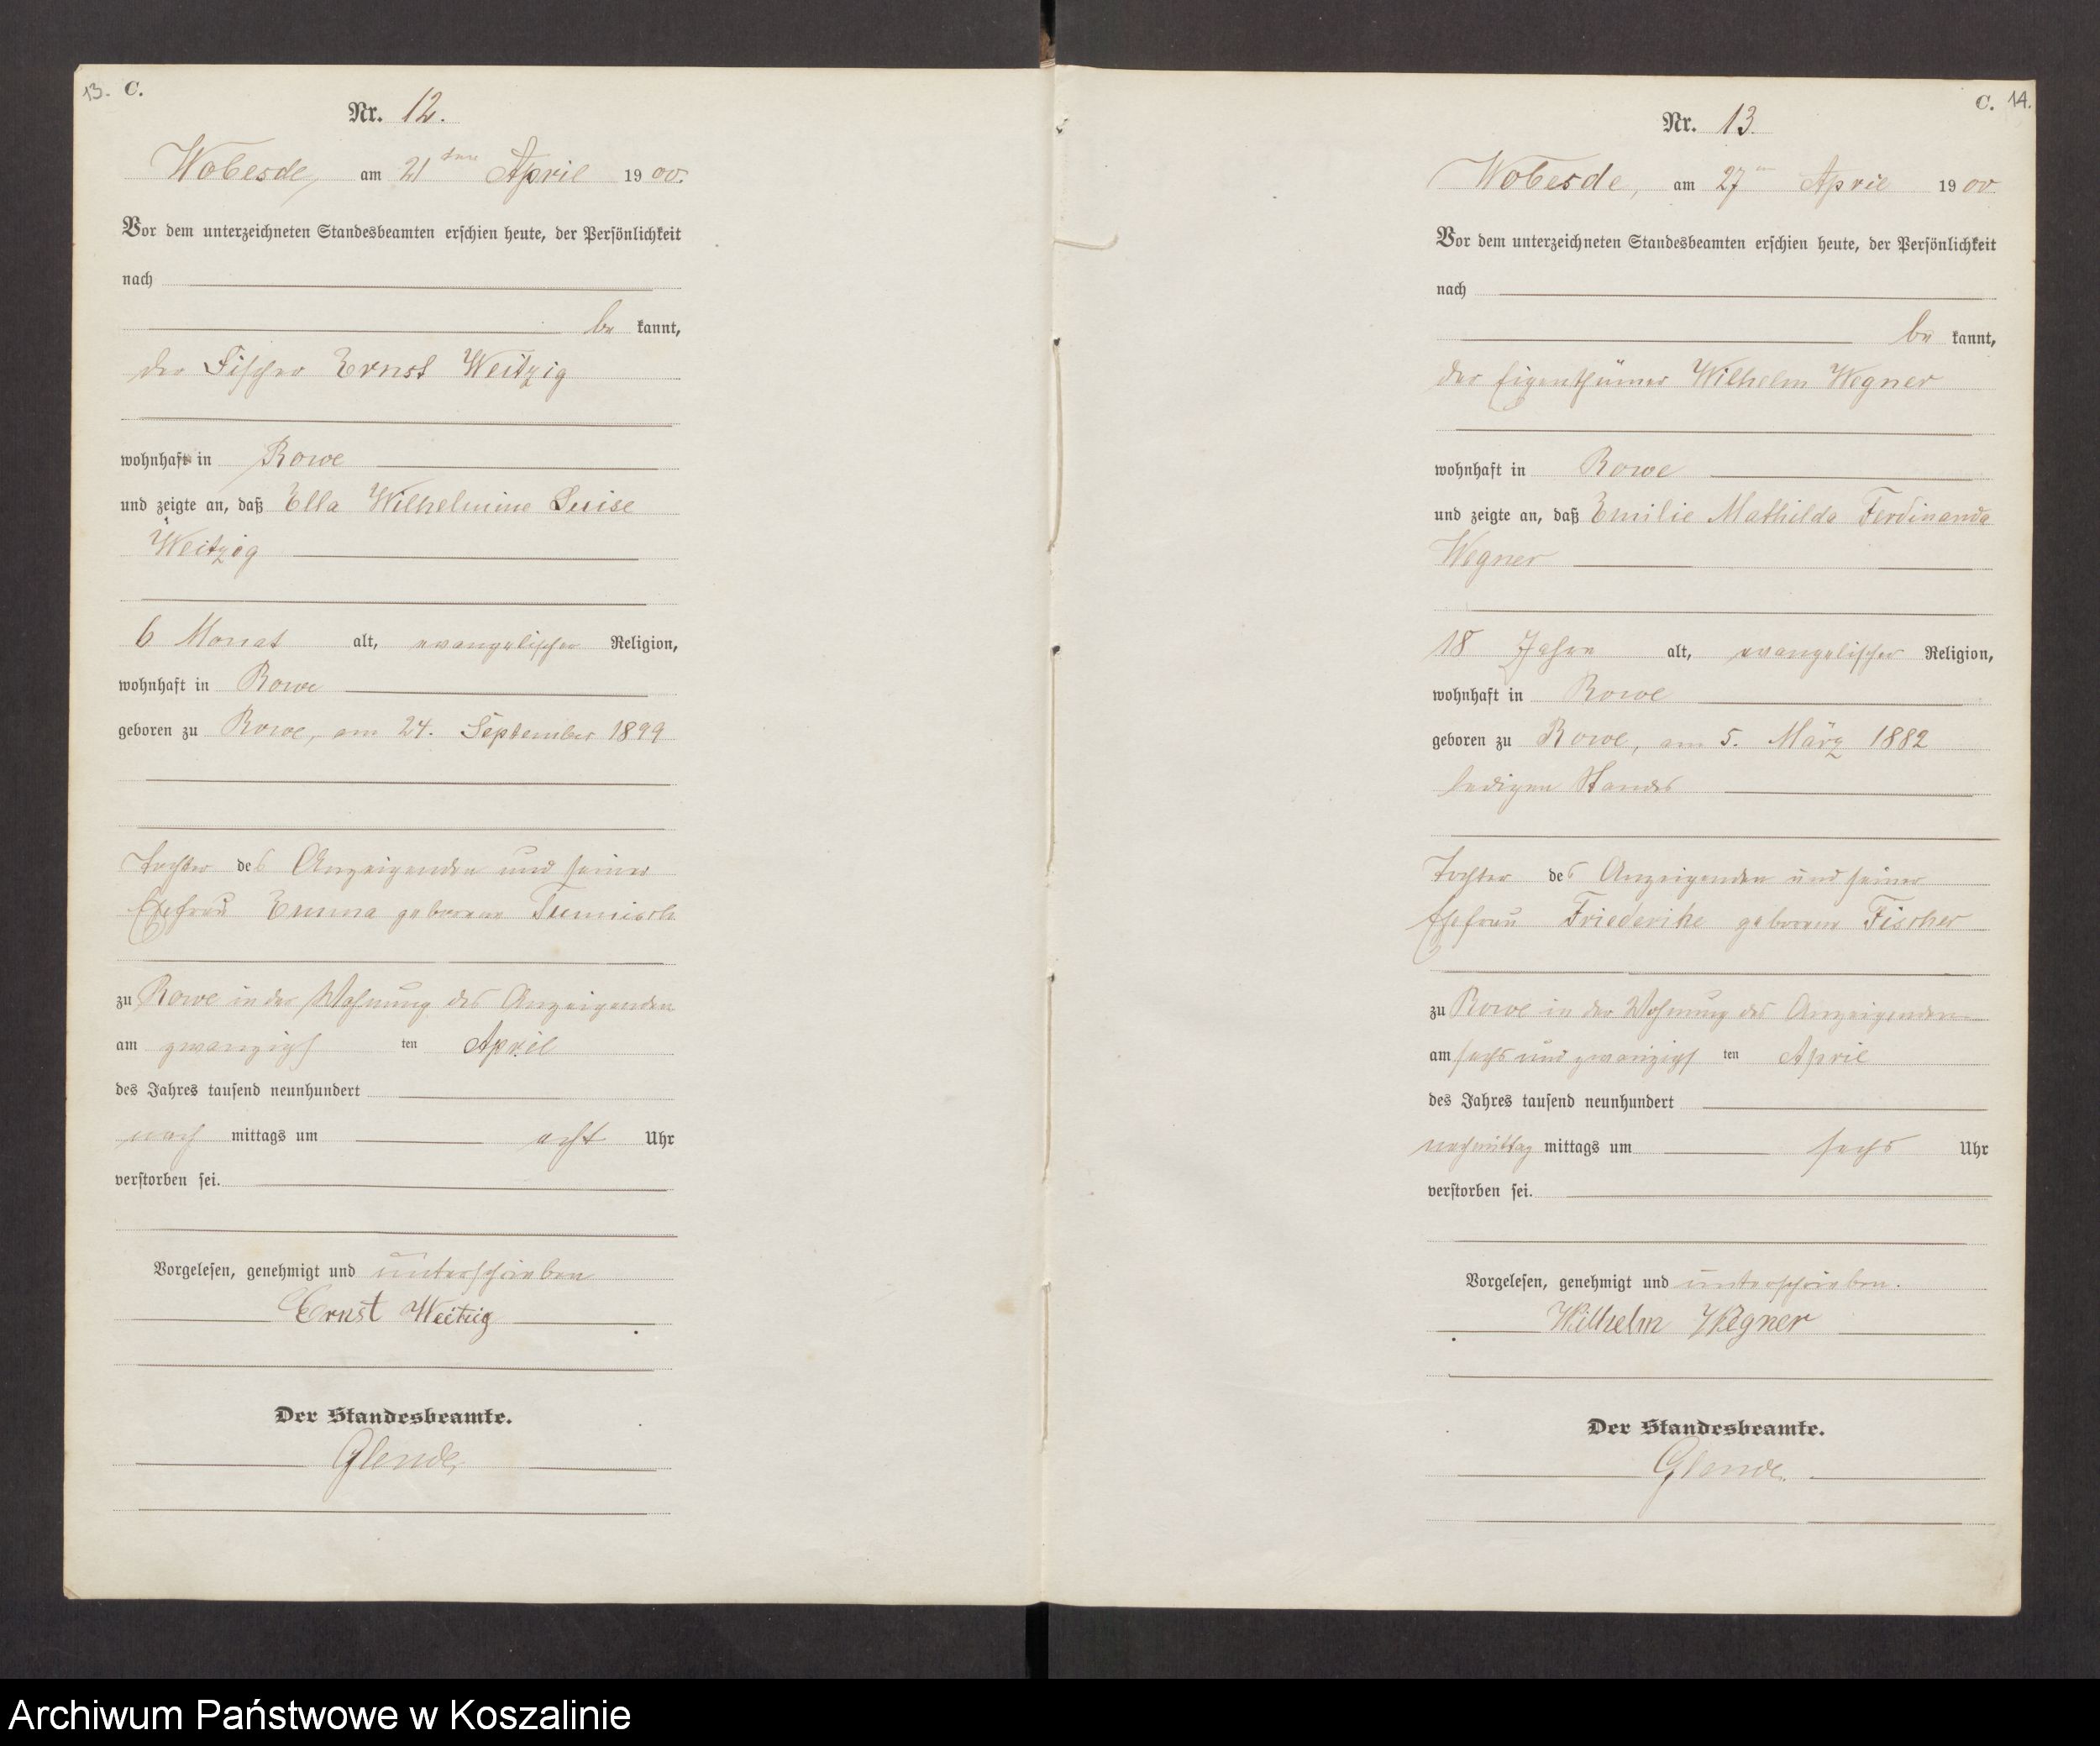 13. C.
Nr. 12.
Wobesde, am 21 ten April 1900.
Vor dem unterzeichneten Standesbeamten erschien heute, der Persönlichkeit
nach
be kannt,
der Fischer Ernst Weitzig
wohnhaft in Rowe
und zeigte an, daß Ella Wilhelmine Luise
Weitzig
6 Monat alt, evangelischer Religion,
wohnhaft in Rowe
geboren zu Rowe, am 24. September 1899
Tochter des Anzeigenden und seiner
Ehefrau Emma geborene
zu Rowe in der Wohnung des Anzeigenden
am zwanzigs ten April
des Jahres tausend neunhundert
nach mittags um acht Uhr
verstorben sei.
Vorgelesen, genehmigt und unterschrieben
Ernst Weitzig
Der Standesbeamte.
Glende.
C. 14.
Nr. 13.
Wobesde, am 27 ten April 1900
Vor dem unterzeichneten Standesbeamten erschien heute, der Persönlichkeit
nach
be kannt,
der Eigenthümer Wilhelm Wegner
wohnhaft in Rowe
und zeigte an, daß Emilie Mathilda Ferdinanda
Wegner
18 Jahre alt, evangelischer Religion,
wohnhaft in Rowe
geboren zu Rowe, am 5. März 1882
ledigen Standes
Tochter des Anzeigenden und seiner
Ehefrau Friederike geborene Fischer
zu Rowe in der Wohnung des Anzeigenden
am sechs und zwanzigs ten April
des Jahres tausend neunhundert
nachmittag mittags um sechs Uhr
verstorben sei.
Vorgelesen, genehmigt und unterschrieben.
Wilhelm Wegner
Der Standesbeamte.
Glende.
Archiwum Państwowe w Koszalinie